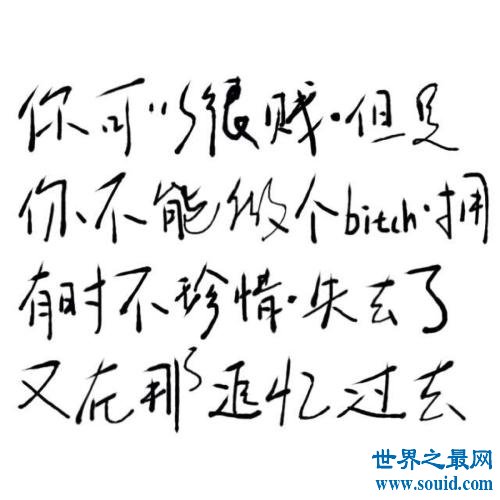 你可以很贱·但是
你不能做个bitch·拥
有时不珍惜·失去了
又在那追忆过去
世界之最网
www.souid.com